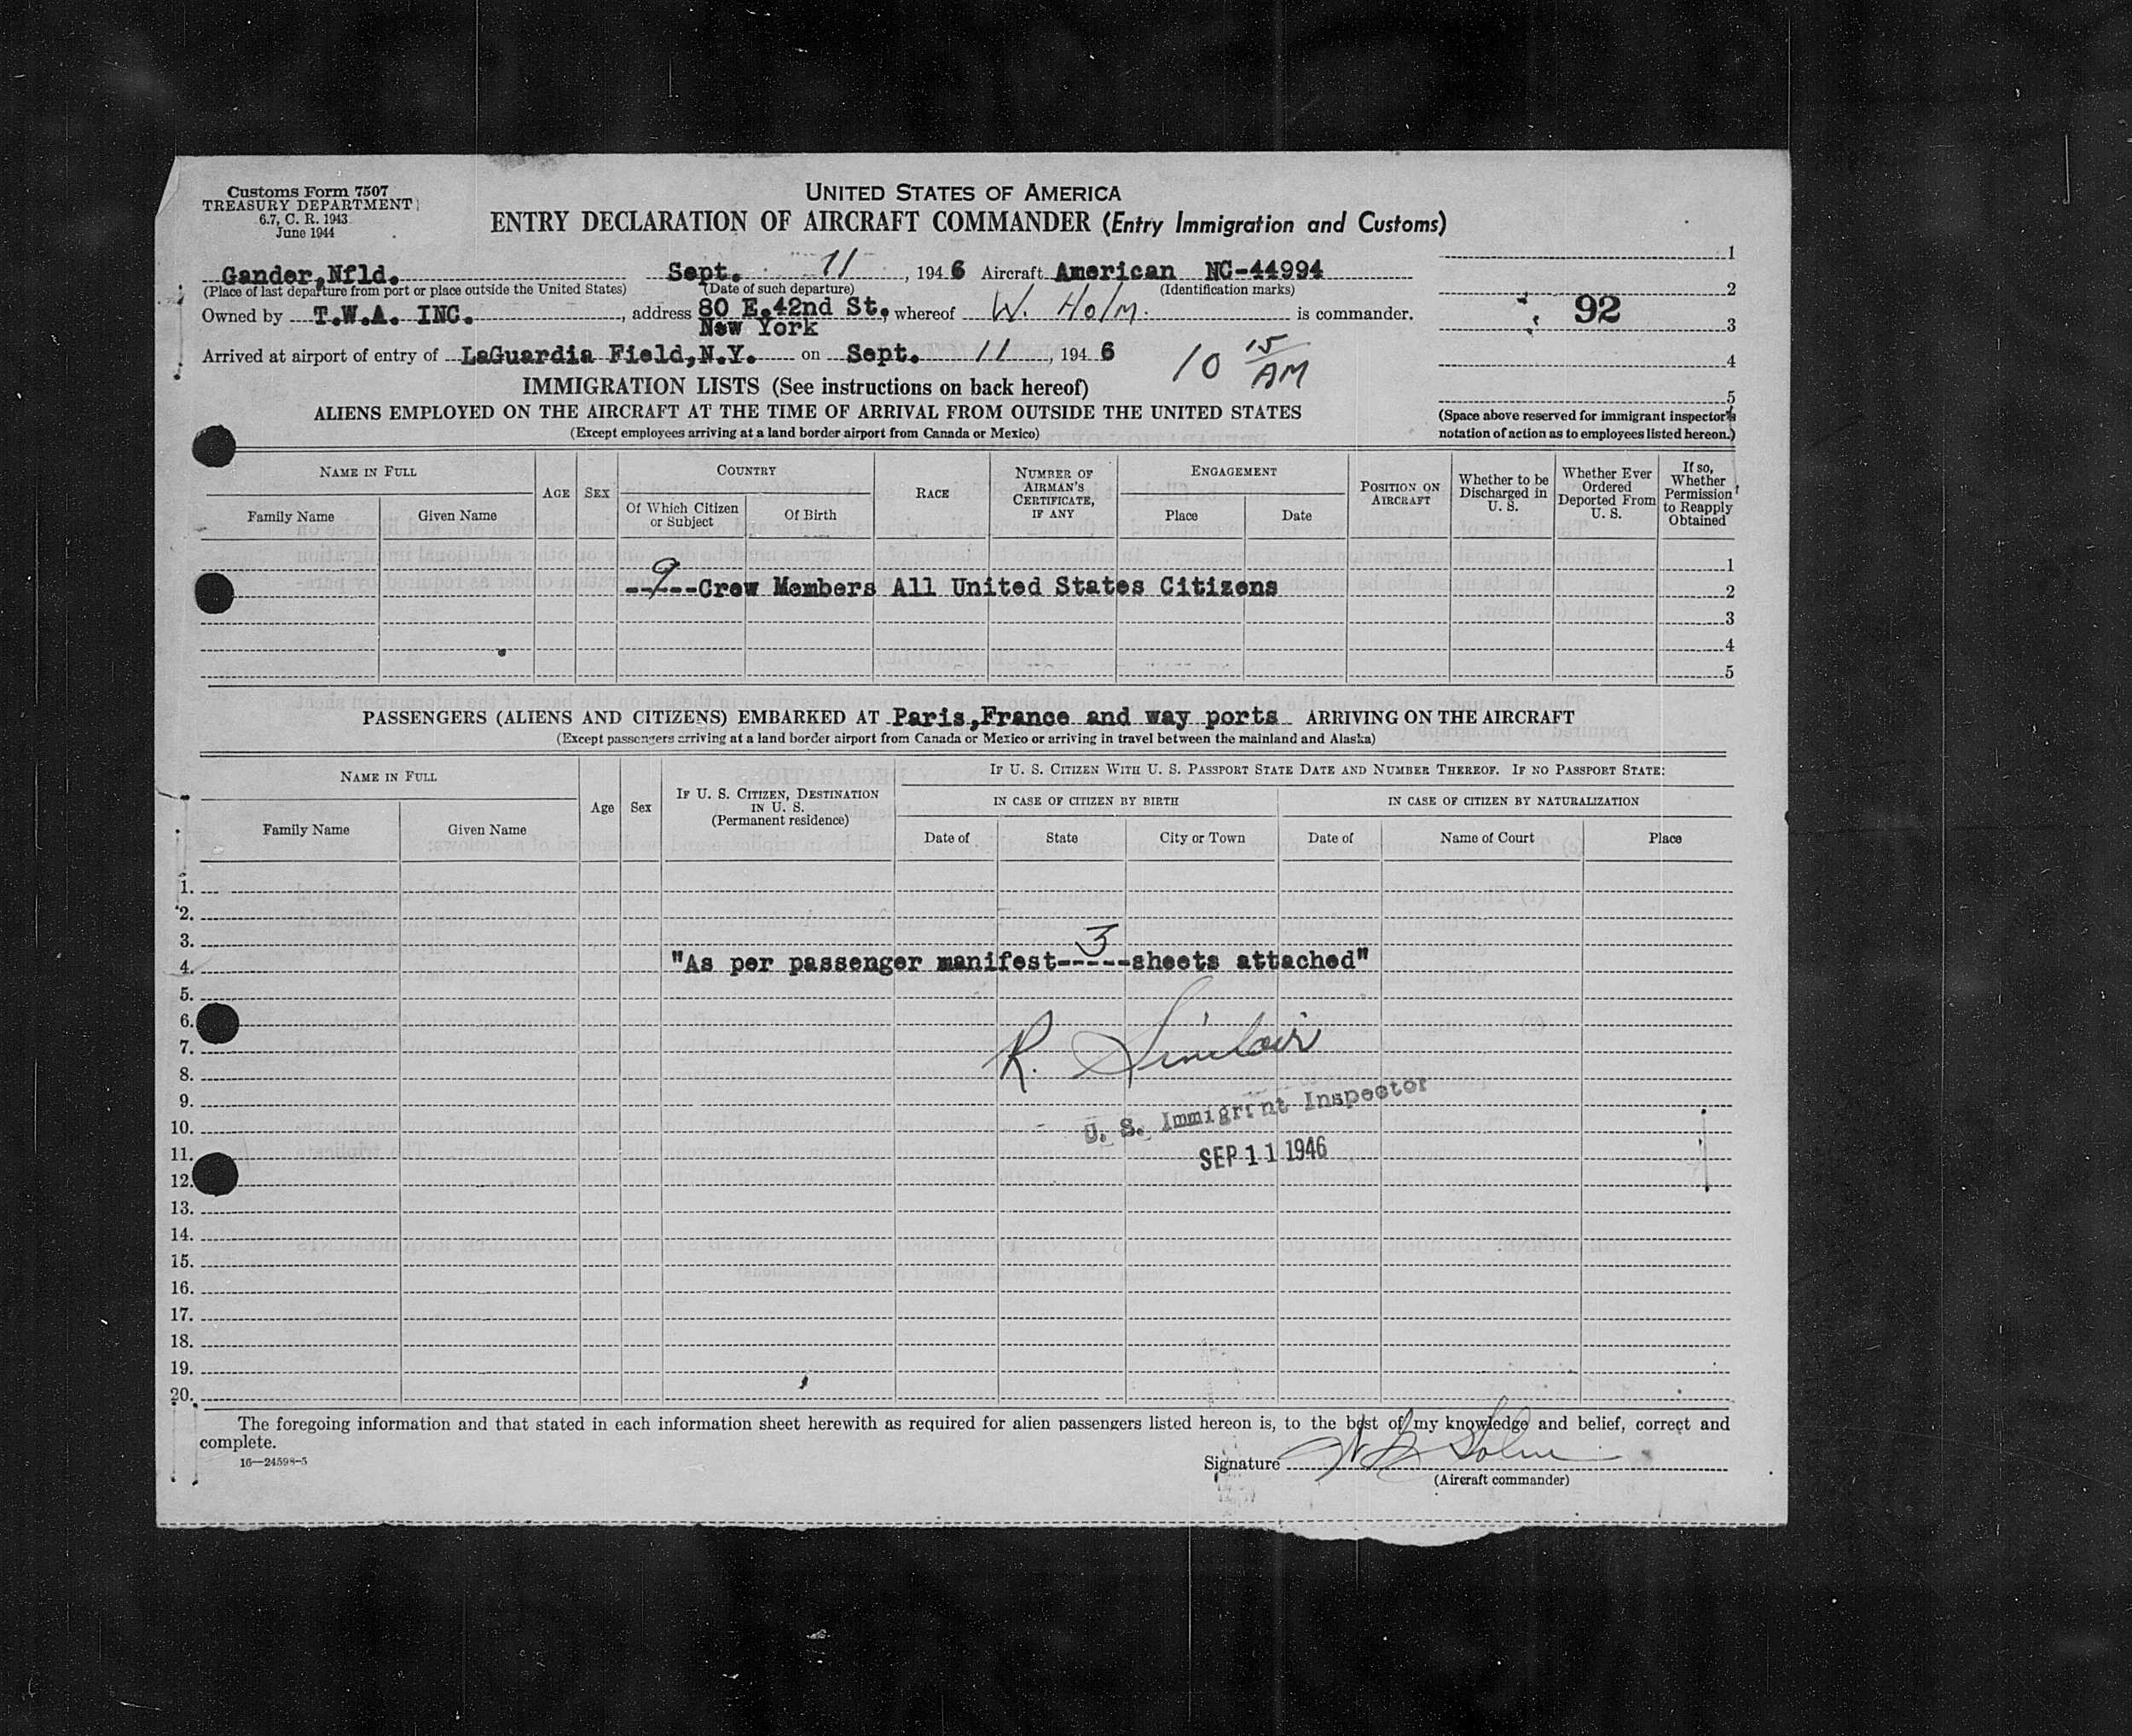 Customs Form 7507
TREASURY DEPARTMENT
6.7, C. R. 1943
June 1944
UNITED STATES OF AMERICA
ENTRY DECLARATION OF AIRCRAFT COMMANDER (Entry Immigration and Customs)
Gander,Nfld. Sept. 11, 1946 Aircraft American NC-44994
(Place of last departure from port or place outside the United States) (Date of such departure) (Identification marks)
Owned by T.W.A. INC., address 80 E.42nd St. New York, whereof W. Holm. is commander.
Arrived at airport of entry of LaGuardia Field,N.Y. on Sept. 11, 1946 10 15 AM
1
2
92
3
4
5
(Space above reserved for immigrant inspector's
notation of action as to employees listed hereon.)
IMMIGRATION LISTS (See instructions on back hereof)
ALIENS EMPLOYED ON THE AIRCRAFT AT THE TIME OF ARRIVAL FROM OUTSIDE THE UNITED STATES
(Except employees arriving at a land border airport from Canada or Mexico)
NAME IN FULL
Family Name
Given Name
AGE
SEX
COUNTRY
Of Which Citizen or Subject
Of Birth
RACE
NUMBER OF AIRMAN'S CERTIFICATE, IF ANY
ENGAGEMENT
Place
Date
POSITION ON AIRCRAFT
Whether to be Discharged in U. S.
Whether Ever Ordered Deported From U. S.
If so, Whether Permission to Reapply Obtained
1
--9---Crew Members All United States Citizens 2
3
4
5
PASSENGERS (ALIENS AND CITIZENS) EMBARKED AT Paris,France and way ports ARRIVING ON THE AIRCRAFT
(Except passengers arriving at a land border airport from Canada or Mexico or arriving in travel between the mainland and Alaska)
NAME IN FULL
Family Name
Given Name
Age
Sex
IF U. S. CITIZEN, DESTINATION IN U. S.
(Permanent residence)
IF U. S. CITIZEN WITH U. S. PASSPORT STATE DATE AND NUMBER THEREOF. IF NO PASSPORT STATE:
IN CASE OF CITIZEN BY BIRTH
IN CASE OF CITIZEN BY NATURALIZATION
Date of
State
City or Town
Date of
Name of Court
Place
1.
2.
3.
4. "As per passenger manifest--3--sheets attached"
5.
6.
7. R. Sinclair
8.
9.
10. U. S. Immigrant Inspector
11. SEP 11 1946
12.
13.
14.
15.
16.
17.
18.
19.
20.
The foregoing information and that stated in each information sheet herewith as required for alien passengers listed hereon is, to the best of my knowledge and belief, correct and
complete.
16—24598-5
Signature W Holm
(Aircraft commander)